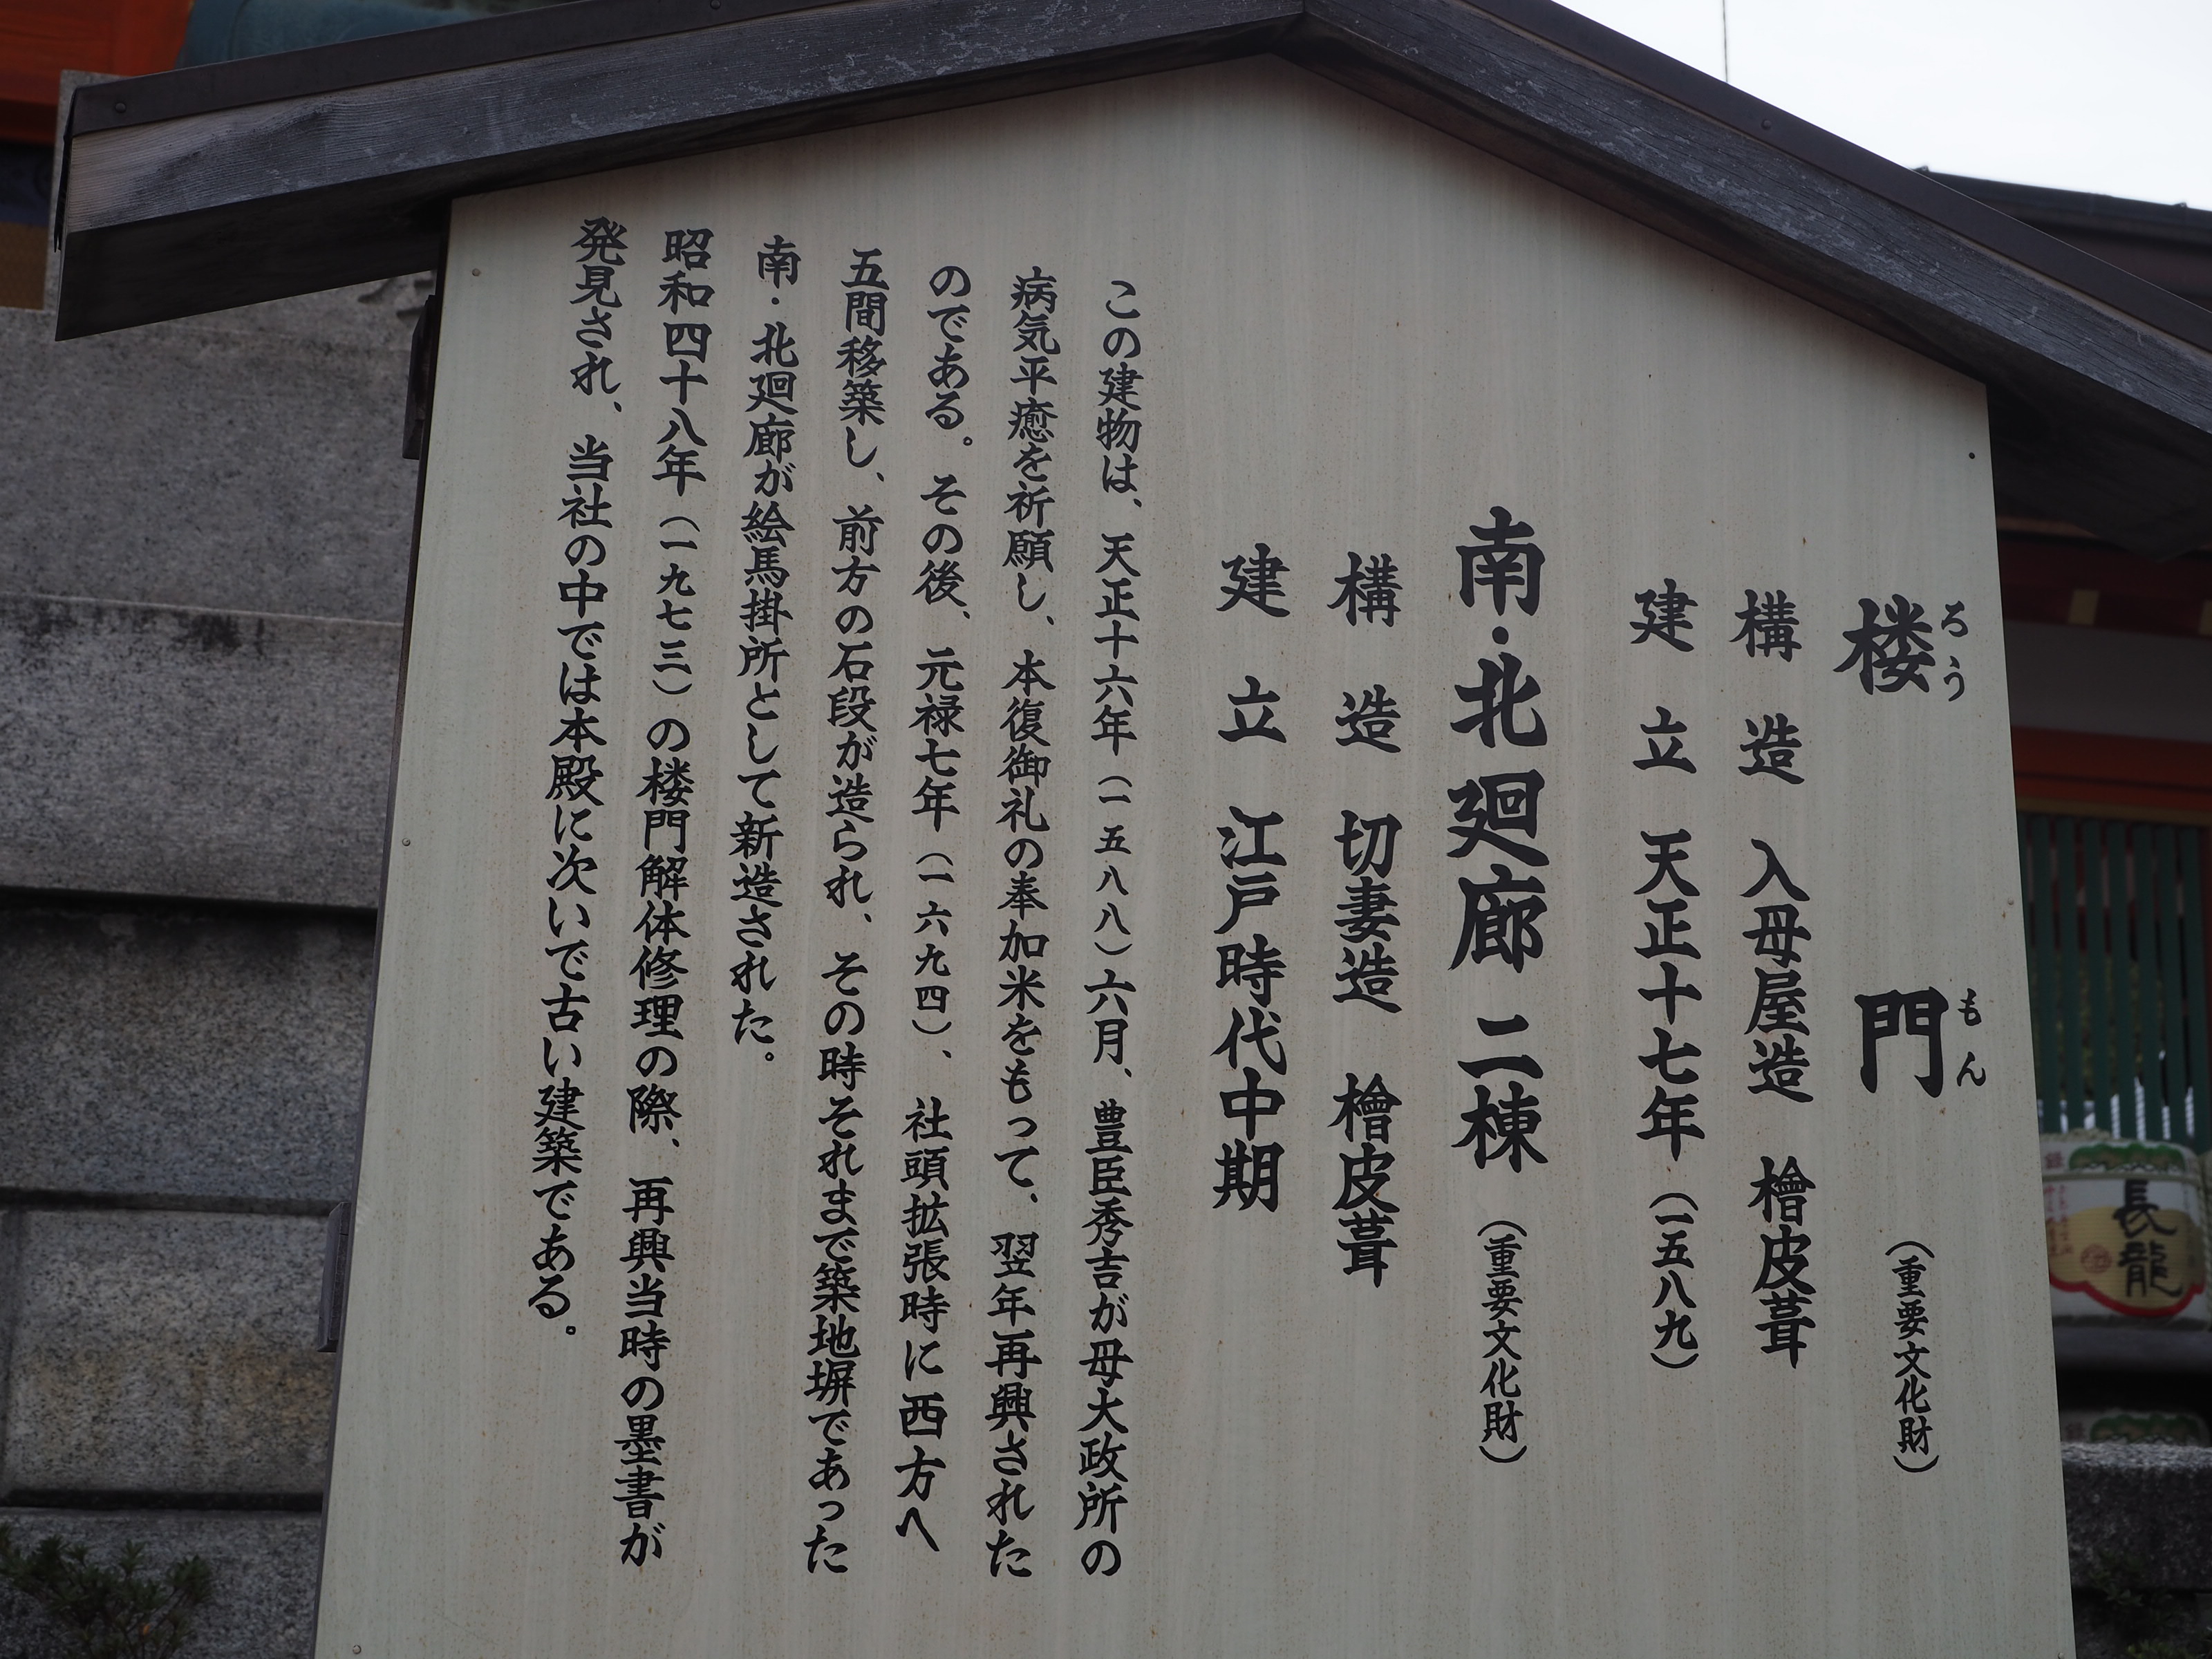 楼門
ろうもん
（重要文化財）
構造 入母屋造 檜皮葺
建立 天正十七年（一五八九）
南・北廻廊 二棟（重要文化財）
構造 切妻造 檜皮葺
建立 江戸時代中期
この建物は、天正十六年（一五八八）六月、豊臣秀吉が母大政所の
病気平癒を祈願し、本復御礼の奉加米をもって、翌年再興された
のである。その後、元禄七年（一六九四）、社頭拡張時に西方へ
五間移築し、前方の石段が造られ、その時それまで築地塀であった
南・北廻廊が絵馬掛所として新造された。
昭和四十八年（一九七三）の楼門解体修理の際、再興当時の墨書が
発見され、当社の中では本殿に次いで古い建築である。
長龍